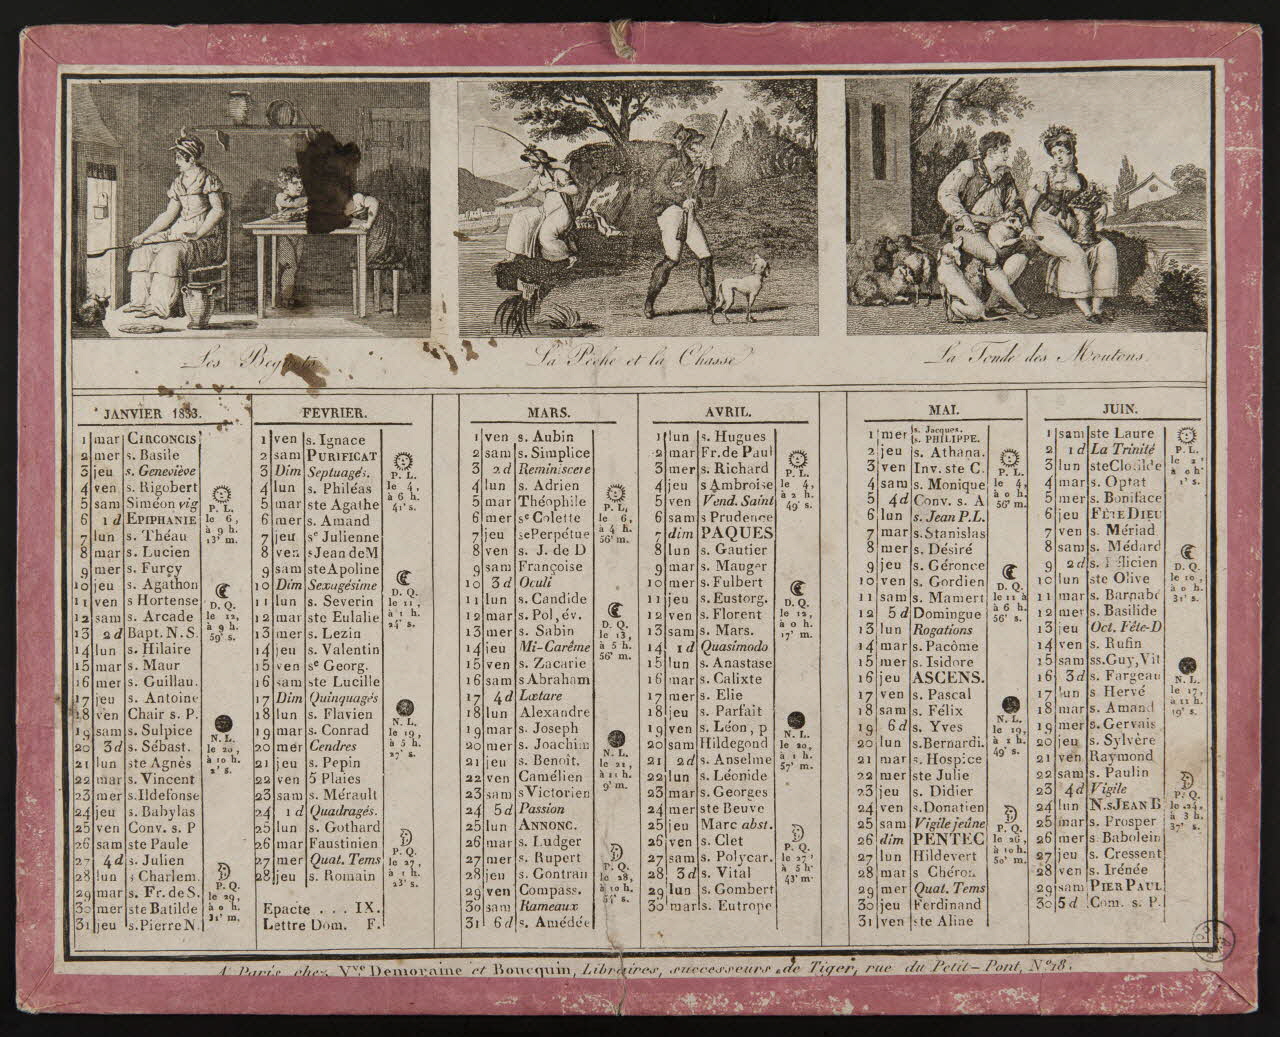 Les Beignets
La Pêche et la Chasse
La Tonde des Moutons
JANVIER 1833.
1 mar CIRCONCIS
2 mer s. Basile
3 jeu s. Geneviève
4 ven s. Rigobert
5 sam Siméon vig
6 1 d EPIPHANIE
7 lun s. Théau
8 mar s. Lucien
9 mer s. Furcy
10 jeu s. Agathon
11 ven s Hortense
12 sam s. Arcade
13 2 d Bapt. N. S.
14 lun s. Hilaire
15 mar s. Maur
16 mer s. Guillau.
17 jeu s. Antoine
18 ven Chair s. P.
19 sam s. Sulpice
20 3 d s. Sébast.
21 lun ste Agnès
22 mar s. Vincent
23 mer s. Ildefonse
24 jeu s. Babylas
25 ven Conv. s. P
26 sam ste Paule
27 4 d s. Julien
28 lun s Charlem.
29 mar s. Fr. de S.
30 mer ste Batilde
31 jeu s. Pierre N.
P. L.
le 6,
à 9 h.
13' m.
D. Q.
le 12,
à 9 h.
59' s.
N. L.
le 20,
à 10 h.
2' s.
P. Q.
le 29,
à 0 h.
31' m.
FEVRIER.
1 ven s. Ignace
2 sam PURIFICAT
3 Dim Septuagés.
4 lun s. Philéas
5 mar ste Agathe
6 mer s. Amand
7 jeu se Julienne
8 ven s Jean de M
9 sam ste Apoline
10 Dim Sexagésime
11 lun s. Severin
12 mar ste Eulalie
13 mer s. Lezin
14 jeu s. Valentin
15 ven se Georg.
16 sam ste Lucille
17 Dim Quinquagés
18 lun s. Flavien
19 mar s. Conrad
20 mer Cendres
21 jeu s. Pepin
22 ven 5 Plaies
23 sam s. Mérault
24 1 d Quadragés.
25 lun s. Gothard
26 mar Faustinien
27 mer Quat. Tems
28 jeu s. Romain
Epacte . . . IX.
Lettre Dom. F.
P. L.
le 4,
à 6 h.
41' s.
D. Q.
le 11,
à 1 h.
24' s.
N. L.
le 19,
à 5 h.
27' s.
P. Q.
le 27,
à 1 h.
23' s.
MARS.
1 ven s. Aubin
2 sam s. Simplice
3 2 d Reminiscere
4 lun s. Adrien
5 mar Théophile
6 mer se Colette
7 jeu se Perpétue
8 ven s. J. de D
9 sam Françoise
10 3 d Oculi
11 lun s. Candide
12 mar s. Pol, év.
13 mer s. Sabin
14 jeu Mi-Carême
15 ven s. Zacarie
16 sam s Abraham
17 4 d Lætare
18 lun Alexandre
19 mar s. Joseph
20 mer s. Joachim
21 jeu s. Benoît.
22 ven Camélien
23 sam s Victorien
24 5 d Passion
25 lun ANNONC.
26 mar s. Ludger
27 mer s. Rupert
28 jeu s. Gontran
29 ven Compass.
30 sam Rameaux
31 6 d s. Amédée
P. L.
le 6,
à 4 h.
56' m.
D. Q.
le 13,
à 5 h.
56' m.
N. L.
le 21,
à 11 h.
9' m.
P. Q.
le 28,
à 10 h.
54' s.
AVRIL.
1 lun s. Hugues
2 mar Fr. de Paul
3 mer s. Richard
4 jeu s Ambroise
5 ven Vend. Saint
6 sam s Prudence
7 dim PAQUES
8 lun s. Gautier
9 mar s. Mauger
10 mer s. Fulbert
11 jeu s. Eustorg.
12 ven s. Florent
13 sam s. Mars.
14 1 d Quasimodo
15 lun s. Anastase
16 mar s. Calixte
17 mer s. Elie
18 jeu s. Parfait
19 ven s. Léon, p
20 sam Hildegond
21 2 d s. Anselme
22 lun s. Léonide
23 mar s. Georges
24 mer ste Beuve
25 jeu Marc abst.
26 ven s. Clet
27 sam s. Polycar.
28 3 d s. Vital
29 lun s. Gombert
30 mar s. Eutrope
P. L.
le 4,
à 2 h.
49' s.
D. Q.
le 12,
à 0 h.
17' m.
N. L.
le 20,
à 1 h.
57' m.
P. Q.
le 27,
à 5 h.
43' m.
MAI.
1 mer s. Jacques. s. PHILIPPE.
2 jeu s. Athana.
3 ven Inv. ste C.
4 sam s. Monique
5 4 d Conv. s. A
6 lun s. Jean P. L.
7 mar s. Stanislas
8 mer s. Désiré
9 jeu s. Géronce
10 ven s. Gordien
11 sam s. Mamert
12 5 d Domingue
13 lun Rogations
14 mar s. Pacôme
15 mer s. Isidore
16 jeu ASCENS.
17 ven s. Pascal
18 sam s. Félix
19 6 d s. Yves
20 lun s. Bernardi.
21 mar s. Hospice
22 mer ste Julie
23 jeu s. Didier
24 ven s. Donatien
25 sam Vigile jeûne
26 dim PENTEC
27 lun Hildevert
28 mar s Chéron
29 mer Quat. Tems
30 jeu Ferdinand
31 ven ste Aline
P. L.
le 4,
à 0 h.
56' m.
D. Q.
le 11
à 6 h.
56' s.
N. L.
le 19,
à 1 h.
49' s.
P. Q.
le 26,
à 10 h.
50' m.
JUIN.
1 sam ste Laure
2 1 d La Trinité
3 lun ste Clotilde
4 mar s. Optat
5 mer s. Boniface
6 jeu FÊTE DIEU
7 ven s. Mériad
8 sam s. Médard
9 2 d s. Félicien
10 lun ste Olive
11 mar s. Barnabé
12 mer s. Basilide
13 jeu Oct. Fête-D
14 ven s. Rufin
15 sam ss. Guy, Vit
16 3 d s. Fargeau
17 lun s Hervé
18 mar s. Amand
19 mer s. Gervais
20 jeu s. Sylvère
21 ven Raymond
22 sam s. Paulin
23 4 d Vigile
24 lun N. s JEAN B
25 mar s. Prosper
26 mer s. Babolein
27 jeu s. Cressent
28 ven s. Irénée
29 sam PIER PAUL
30 5 d Com. s. P.
P. L.
le 2,
à 0 h.
1' s.
D. Q.
le 10,
à 0 h.
31' s.
N. L.
le 17,
à 11 h.
19' s.
P. Q.
le 24,
à 3 h.
37' s.
A Paris, chez Vve Demoraine et Boucquin, Libraires, successeurs de Tiger, rue du Petit-Pont, No 18.